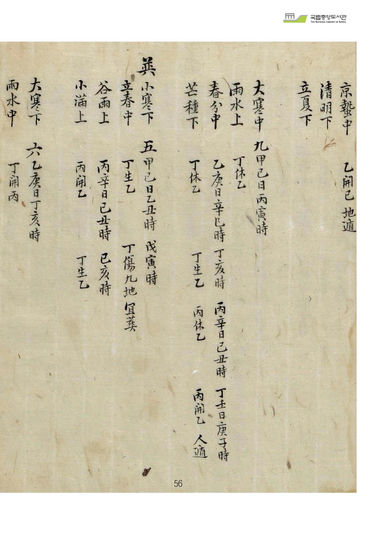 국립중앙도서관
京蟄中 乙開己 地遁
清明下
立夏下
大寒中 九甲己日丙寅時
雨水上 丁休乙
春分中 乙庚日辛巳時 丁亥時 丙辛日己丑時 丁壬日庚子時
芒種下 丁休乙 丁生乙 丙休乙 丙開乙 人遁
葬小寒下 五甲己日乙丑時 戊寅時
立春中 丁生乙 丁傷九地 宜葬
谷雨上 丙辛日己丑時 己亥時
小滿上 丙開乙 丁生乙
大寒下 六乙庚日丁亥時
雨水中 丁開丙
56